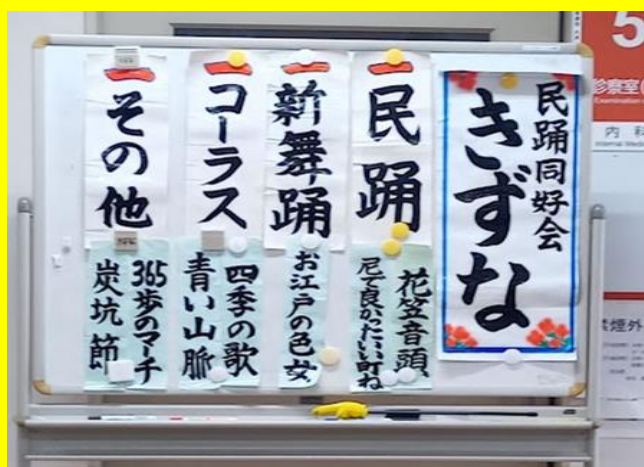 民踊同好会
きずな
一 民踊
花笠音頭
尼で良かったいい町ね
一 新舞踊
お江戸の色女
一 コーラス
四季の歌
青い山脈
一 その他
365歩のマーチ
炭坑節
5
診察室(
内科
禁煙外